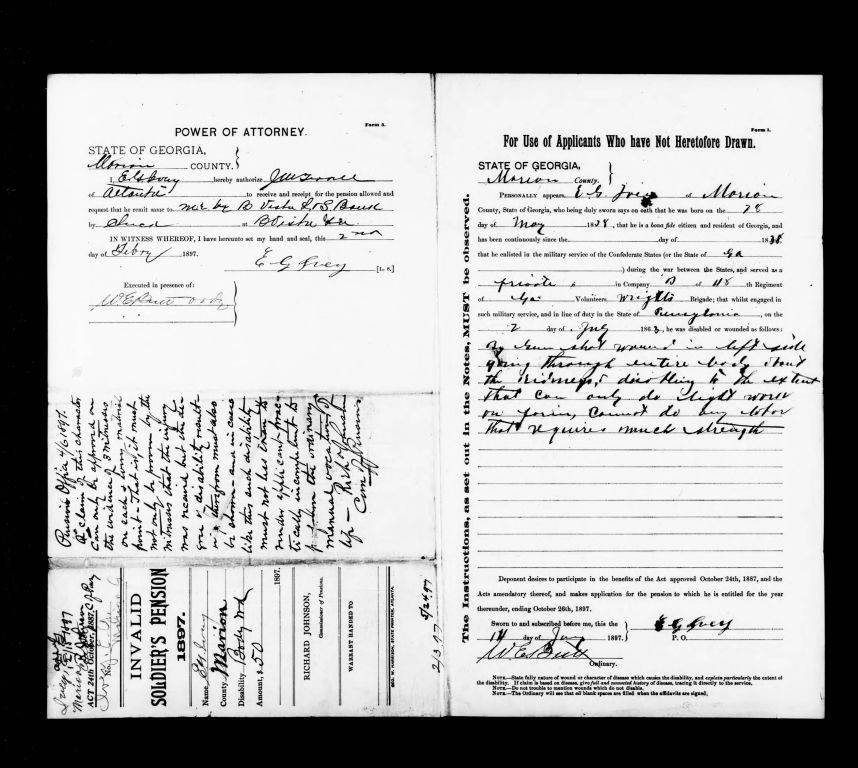 Form 3.
POWER OF ATTORNEY.
STATE OF GEORGIA,
Marion COUNTY.
I, E G Ivey hereby authorize
of Atlanta to receive and receipt for the pension allowed and
request that he remit same to me by B Vista Bank
by at B Vista Ga
IN WITNESS WHEREOF, I have hereunto set my hand and seal, this 2nd
day of Feby 1897.
E G Ivey [L. S.]
Executed in presence of:
W E Butt Ordy
Pension Office 4/6 1897.
A claim of this character
can only be approved on
the evidence of 3 witnesses
on each & every material
point - That is, it must
not only be proven by the
witnesses that the injury
was received but the
disability
therefrom must also
be shown - and in cases
like this such disability
must not less than to
render applicant prac-
tically incompetent to
perform the ordinary
manual vocations of
life - Rich'd Johnson
Com of Pensions
ACT 24th October, 1887,
INVALID
SOLDIER'S PENSION
1897.
Name, E G Ivey
County Marion
Disability Body Wd
Amount, $50
1897.
RICHARD JOHNSON,
Commissioner of Pensions.
WARRANT HANDED TO
GEO. W. HARRISON, STATE PRINTER, ATLANTA.
2/3 97
5/24 97
The Instructions, as set out in the Notes, MUST be observed.
Form 1.
For Use of Applicants Who have Not Heretofore Drawn.
STATE OF GEORGIA,
Marion County.
PERSONALLY appears E. G. Ivey of Marion
County, State of Georgia, who being duly sworn says on oath that he was born on the 28
day of May 1838, that he is a bona fide citizen and resident of Georgia, and
has been continuously since the day of 1838
that he enlisted in the military service of the Confederate States (or the State of Ga
) during the war between the States, and served as a
private in Company B of 48 Regiment
of Ga Volunteers. Wrights Brigade; that whilst engaged in
such military service, and in line of duty in the State of Pennsylvania, on the
2 day of July 1863, he was disabled or wounded as follows:
By Gun shot wound in left side
going through entire body about
the kidneys, disabling to the extent
that can only do light work
on farm, cannot do any labor
that requires much strength
Deponent desires to participate in the benefits of the Act approved October 24th, 1887, and the
Acts amendatory thereof, and makes application for the pension to which he is entitled for the year
thereunder, ending October 26th, 1897.
Sworn to and subscribed before me, this the E G Ivey
14 day of Jany 1897. P. O.
W E Butt
Ordinary.
NOTE.—State fully nature of wound or character of disease which causes the disability, and explain particularly the extent of
the disability. If claim is based on disease, give full and connected history of disease, tracing it directly to the service.
NOTE.—Do not trouble to mention wounds which do not disable.
NOTE.—The Ordinary will see that all blank spaces are filled when the affidavits are signed.